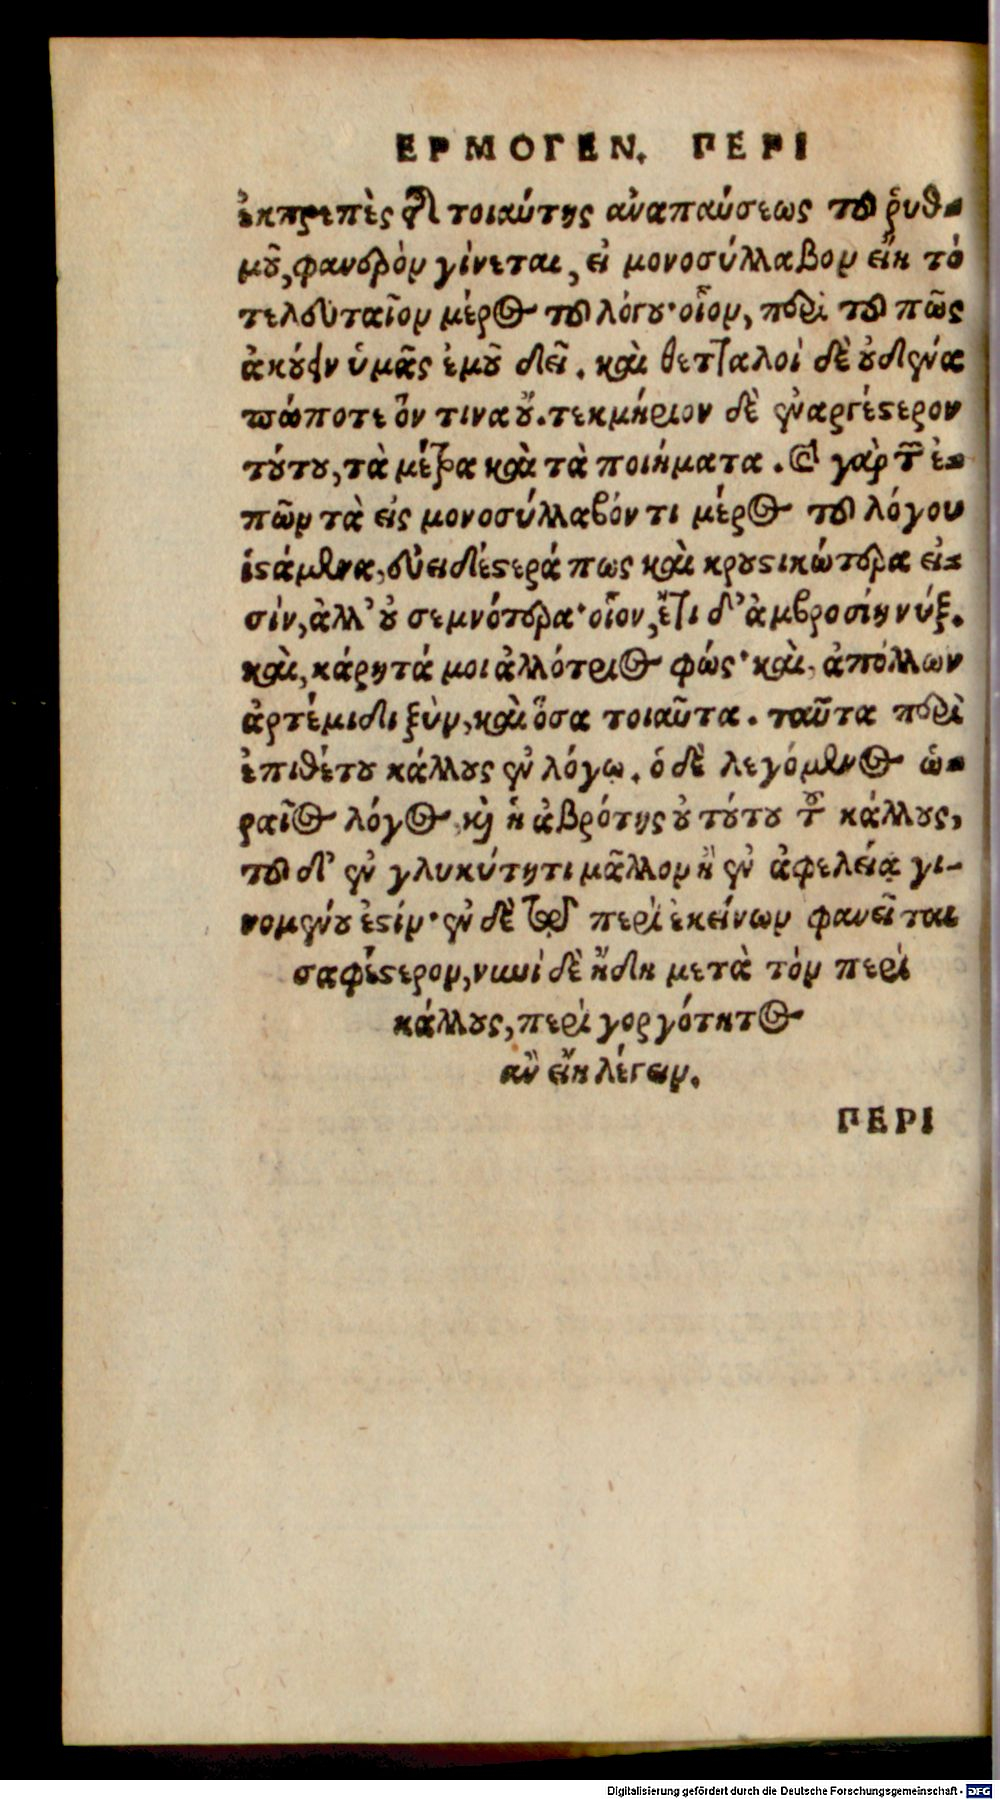 ΕΡΜΟΓΕΝ. ΠΕΡΙ
ἐκπρεπὲς τῆς τοιαύτης ἀναπαύσεως τοῦ ῥυθ-
μοῦ, φανερὸν γίνεται, εἰ μονοσύλλαβον εἴη τὸ
τελευταῖον μέρος τοῦ λόγου· οἷον, περὶ τοῦ πῶς
ἀκούειν ὑμᾶς ἐμοῦ δεῖ. καὶ θετταλοὶ δὲ οὐδένα
πώποτε ὅν τινα οὔ. τεκμήριον δὲ ἐναργέστερον
τούτου, τὰ μέτρα καὶ τὰ ποιήματα. καὶ γὰρ τῶν ἐ-
πῶν τὰ εἰς μονοσύλλαβόν τι μέρος τοῦ λόγου
ἱστάμενα, εὐειδέστερά πως καὶ κρουστικώτερα εἰ-
σίν, ἀλλ' οὐ σεμνότερα· οἷον, ἔτι δ' ἀμβροσίη νύξ.
καὶ, κάρη τά μοι ἀλλότριος φώς· καὶ, ἀπόλλων
ἀρτέμιδι ξὺν, καὶ ὅσα τοιαῦτα. ταῦτα περὶ
ἐπιθέτου κάλλους ἐν λόγῳ. ὁ δὲ λεγόμενος ὡ-
ραῖος λόγος καὶ ἡ ἁβρότης οὐ τούτου τοῦ κάλλους,
τοῦ δ' ἐν γλυκύτητι μᾶλλον ἢ ἐν ἀφελείᾳ γι-
νομένου ἐστίν· ἐν δὲ τῷ περὶ ἐκείνων φανεῖται
σαφέστερον, νυνὶ δὲ ἤδη μετὰ τὸν περὶ
κάλλους, περὶ γοργότητος
ἂν εἴη λέγειν.
ΠΕΡΙ
Digitalisierung gefördert durch die Deutsche Forschungsgemeinschaft - DFG